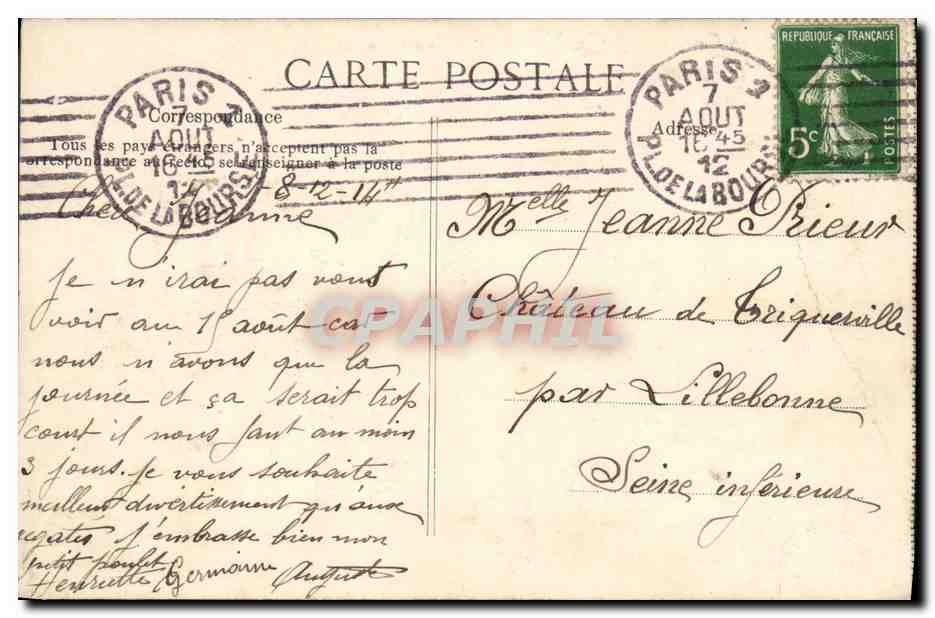 CARTE POSTALE
Correspondance
Tous les pays étrangers n'acceptent pas la
correspondance au recto se renseigner à la poste
PARIS 2
7
AOUT
16 45
12
PL. DE LA BOURSE
8-12-14H
Cher Jeanne
Je n irai pas vous
voir au 15 août car
nous n'avons que la
journée et ça serait trop
court il nous faut au moin
3 jours. Je vous souhaite
meilleur divertissement qu'aux
regates J'embrasse bien mon
petit poulet
Henriette Germaine Auguste
Adresse
PARIS 2
7
AOUT
16 45
12
PL. DE LA BOURSE
REPUBLIQUE FRANÇAISE
5c
POSTES
Melle Jeanne Prieur
Château de Triquerville
par Lillebonne
Seine inférieure
CPAPHIL